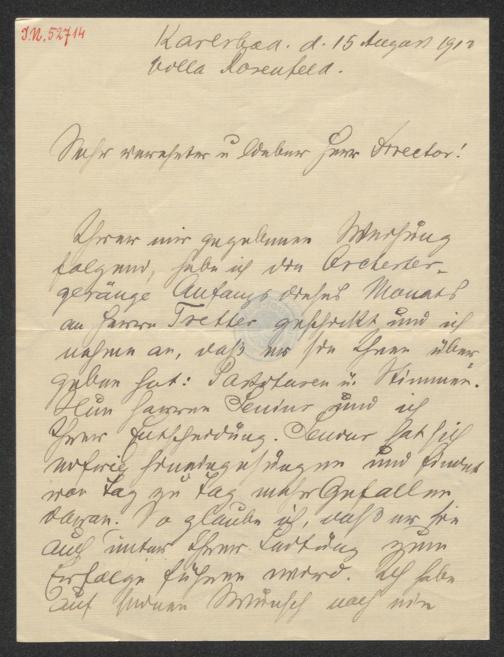 I.N. 52714
Karlsbad. d. 15 August 191
Villa Rosenfeld.
Sehr verehrter u lieber Herr Director!
Ihrer mir gegebenen Weisung
folgend, habe ich die Orchester-
gesänge Anfangs dieses Monats
an Herrn Tretter geschickt und ich
nehme an, daß er sie Ihnen über
geben hat: Partituren u. Stimmen.
Nun harren Senius und ich
Ihrer Entscheidung. Senius hat sich
eifrig hineingesungen und findet
von Tag zu Tag mehr Gefallen
daran. So glaube ich, daß er sie
auch unter Ihrer Leitung zum
Erfolge führen wird. Ich habe
auf seinen Wunsch noch ein